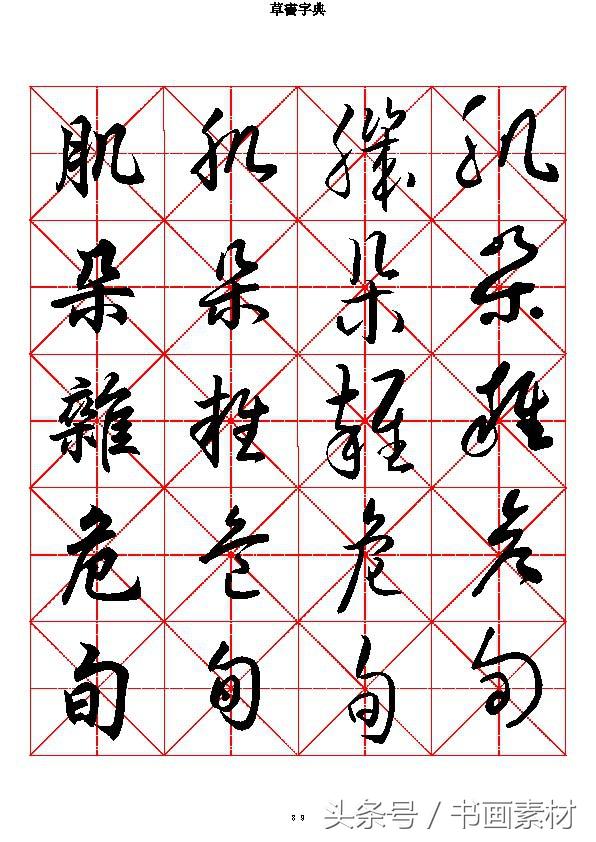 草書字典
肌 肌 肌 肌
朵 朵 朵 朵
雜 雜 雜 雜
危 危 危 危
旬 旬 旬 旬
89
头条号 / 书画素材